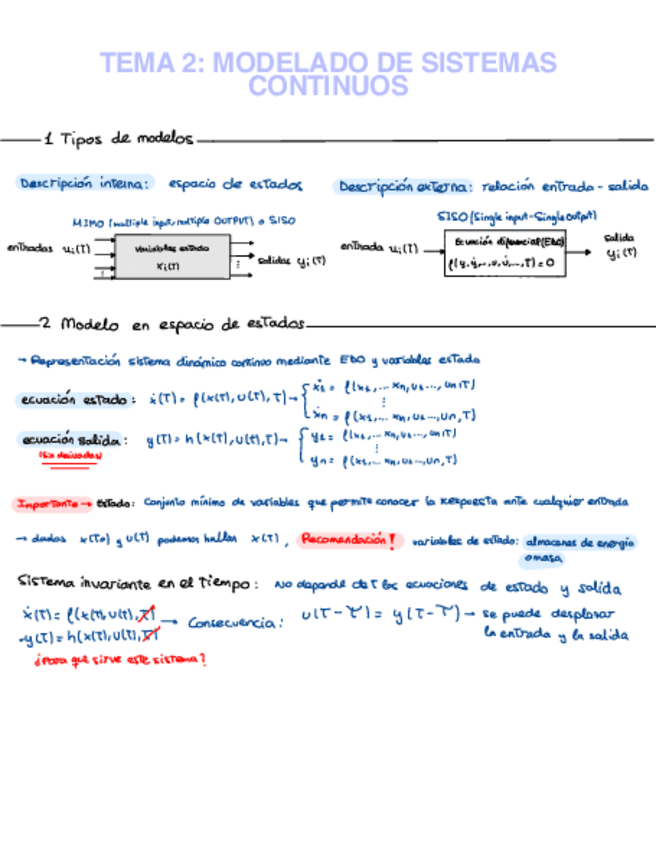 TEMA 2: MODELADO DE SISTEMAS
CONTINUOS
1 Tipos de modelos
Descripción interna: espacio de estados
Descripción externa: relación entrada - salida
MIMO (multiple input, multiple OUTPUT) o SISO
SISO (Single input-Single output)
entradas ui(T)
variables estado
xi(T)
salidas yi(T)
entrada ui(T)
Ecuación diferencial (EDO)
f(y, ẏ, ..., u, u̇, ..., T) = 0
salida
yi(T)
2 Modelo en espacio de estados
→ Representación sistema dinámico continuo mediante EDO y variables estado
ecuación estado: ẋ(T) = f(x(T), u(T), T) →
ẋ1 = f(x1, ... xn, u1 ..., un, T)
⋮
ẋn = f(x1, ... xn, u1 ..., un, T)
ecuación salida: y(T) = h(x(T), u(T), T) →
(sin derivadas)
y1 = f(x1, ... xn, u1 ..., un, T)
⋮
yn = f(x1, ... xn, u1 ..., un, T)
Importante → Estado: Conjunto mínimo de variables que permite conocer la respuesta ante cualquier entrada
→ dados x(T0) y u(T) podemos hallar x(T), Recomendación! variables de estado: almacenes de energía
o masa
Sistema invariante en el tiempo: No depende de T las ecuaciones de estado y salida
ẋ(T) = f(x(T), u(T), T)
y(T) = h(x(T), u(T), T)
→ Consecuencia: u(T - τ) = y(T - τ) → se puede desplazar
la entrada y la salida
¿Para qué sirve este sistema?